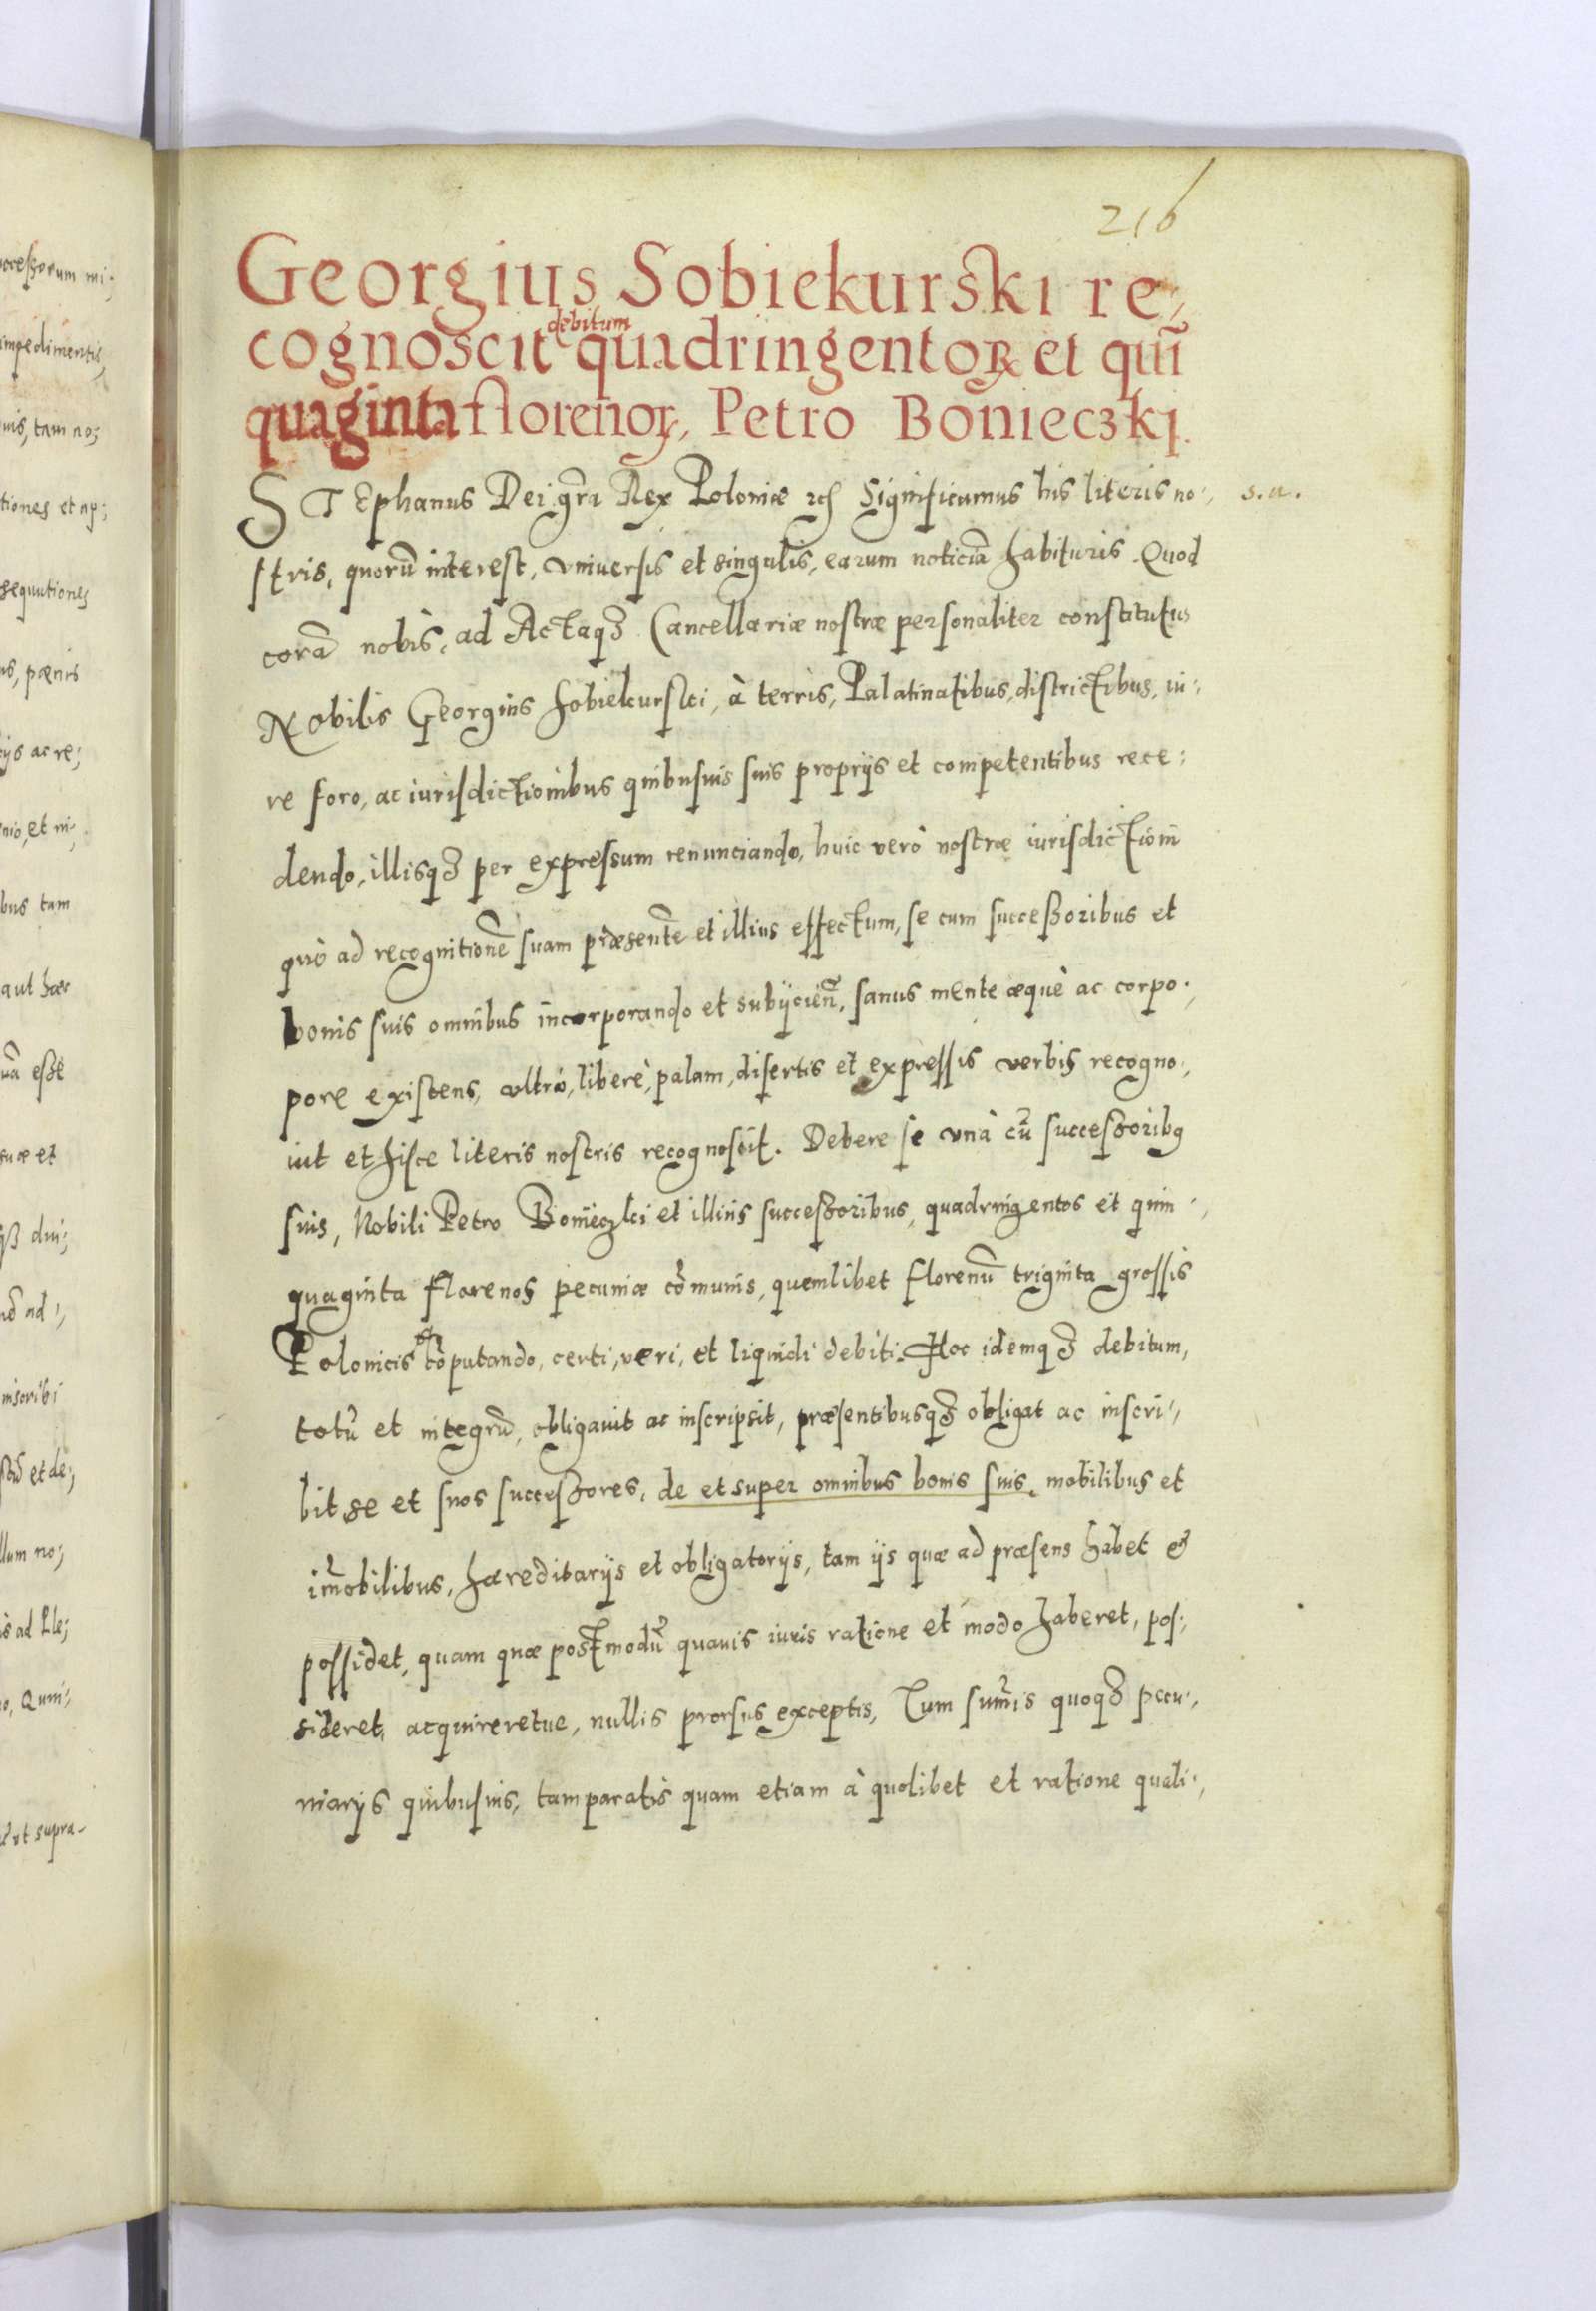 216
Georgius Sobiekurski re-
cognoscit debitum quadringentoꝝ et quī
quaginta florenoꝝ, Petro Bonieczki.
STEphanus Dei grã Rex Poloniæ etc̃ Significamus his literis no-, s.a.
stris, quorũ interest, vniuersis et singulis, earum noticiã habituris. Quod
corã nobis, ad Actaqꝫ Cancellariæ nostræ personaliter constitutus
Nobilis Georgius Sobiekurski, à terris, Palatinatibus, districtibus, iu-
re foro, ac iurisdictionibus quibusuis suis proprijs et competentibus rece:
dendo, illisqꝫ per expressum renunciando, huic verò nostræ iurisdictioni
quò ad recognitionẽ suam præsentẽ et illius effectum, se cum successoribus et
bonis suis omnibus incorporando et subijcieñ, sanus mente æquè ac corpo-,
pore existens, vltrò, liberè, palam, disertis et expressis verbis recogno-,
uit et hisce literis nostris recognoscit. Debere se vnà cũ successoribꝯ
suis, Nobili Petro Bonieczki et illius successoribus, quadringentos et quin-,
quaginta florenos pecuniæ cõmunis, quemlibet florenũ triginta grossis
Polonicis cõputando, certi, veri, et liquidi debiti. Hoc idemqꝫ debitum,
totũ et integrũ, obligauit ac inscripsit, præsentibusqꝫ obligat ac inscri-,
bit se et suos successores, de et super omnibus bonis suis, mobilibus et
im̃obilibus, hæreditarijs et obligatorijs, tam ijs quæ ad præsens habet &
possidet, quam quæ postmodũ quauis iuris ratione et modo haberet, pos-,
sideret, acquireretue, nullis prorsus exceptis, Tum sum̃is quoqꝫ pecu-,
niarijs quibusuis, tam paratis quam etiam à quolibet et ratione quali-,